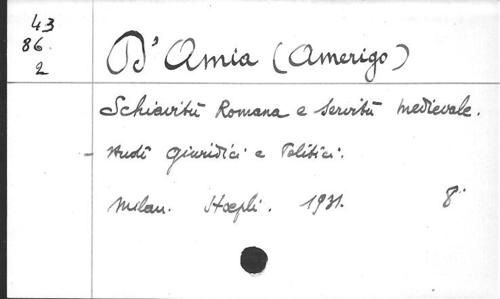 43
86.
2
D'Amia (Amerigo)
Schiavitù Romana e servitù medievale.
- studi giuridici e Politici.
Milan. Hoepli. 1931. 8°